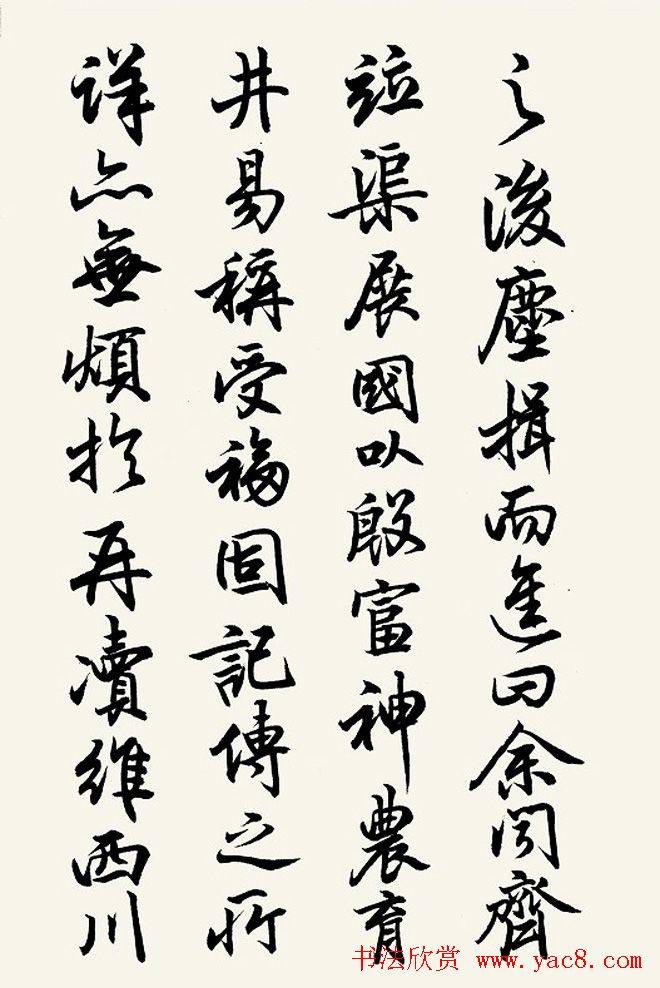 之後塵揖而進曰余聞齊
竝渠展國以殷富神農育
井易稱受福固記傳之所
詳亦無煩於再瀆維西川
书法欣赏 www.yac8.com